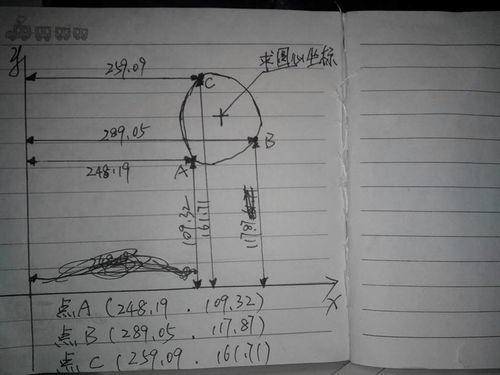 y
259.09
C
求圆心坐标
289.05
B
248.19
A
109.32
161.71
117.87
X
点A(248.19 . 109.32)
点B(289.05 . 117.87)
点C(259.09 . 161.71)